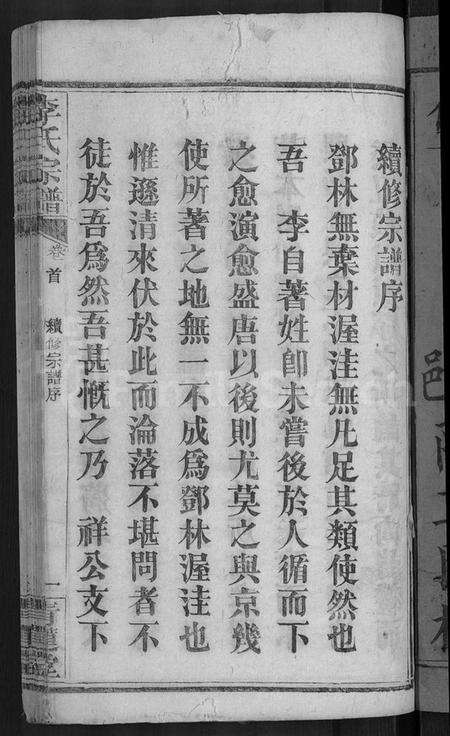 續修宗譜序
鄧林無棄材渥洼無凡足其類使然也
吾　李自著姓卽未嘗後於人循而下
之愈演愈盛唐以後則尤莫之與京幾
使所著之地無一不成爲鄧林渥洼也
惟遜清來伏於此而淪落不堪問者不
徒於吾爲然吾甚慨之乃　祥公支下
李氏宗譜
卷首
續修宗譜序
一
堂